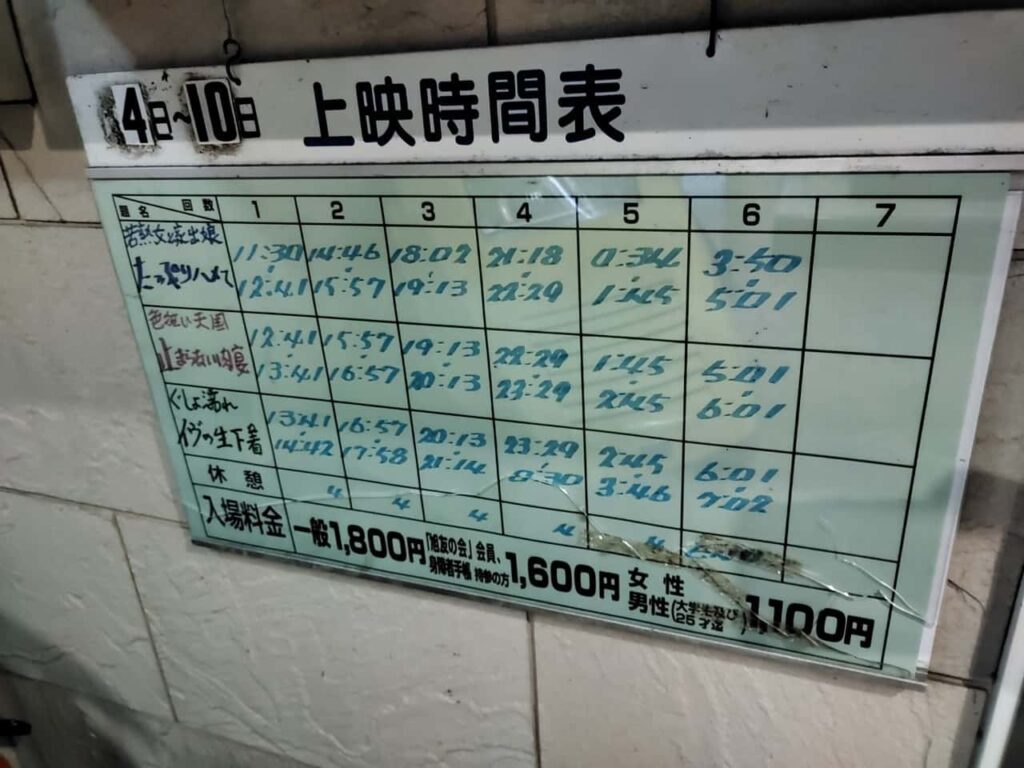 4日~10日 上映時間表
題名 回数 1 2 3 4 5 6 7
11:30 14:46 18:02 21:18 0:34 3:50
たっぷりハメて 12:41 15:57 19:13 22:29 1:45 5:01
色狂い天国 12:41 15:57 19:13 22:29 1:45 5:01
止まらない肉宴 13:41 16:57 20:13 23:29 2:45 6:01
ぐしょ濡れ 13:41 16:57 20:13 23:29 2:45 6:01
イヴの生下着 14:42 17:58 21:14 0:30 3:46 7:02
休憩 4 4 4 4 4
入場料金 一般1,800円 「旭友の会」会員、身障者手帳 持参の方 1,600円 女性 男性(大学生及び25才迄)1,100円